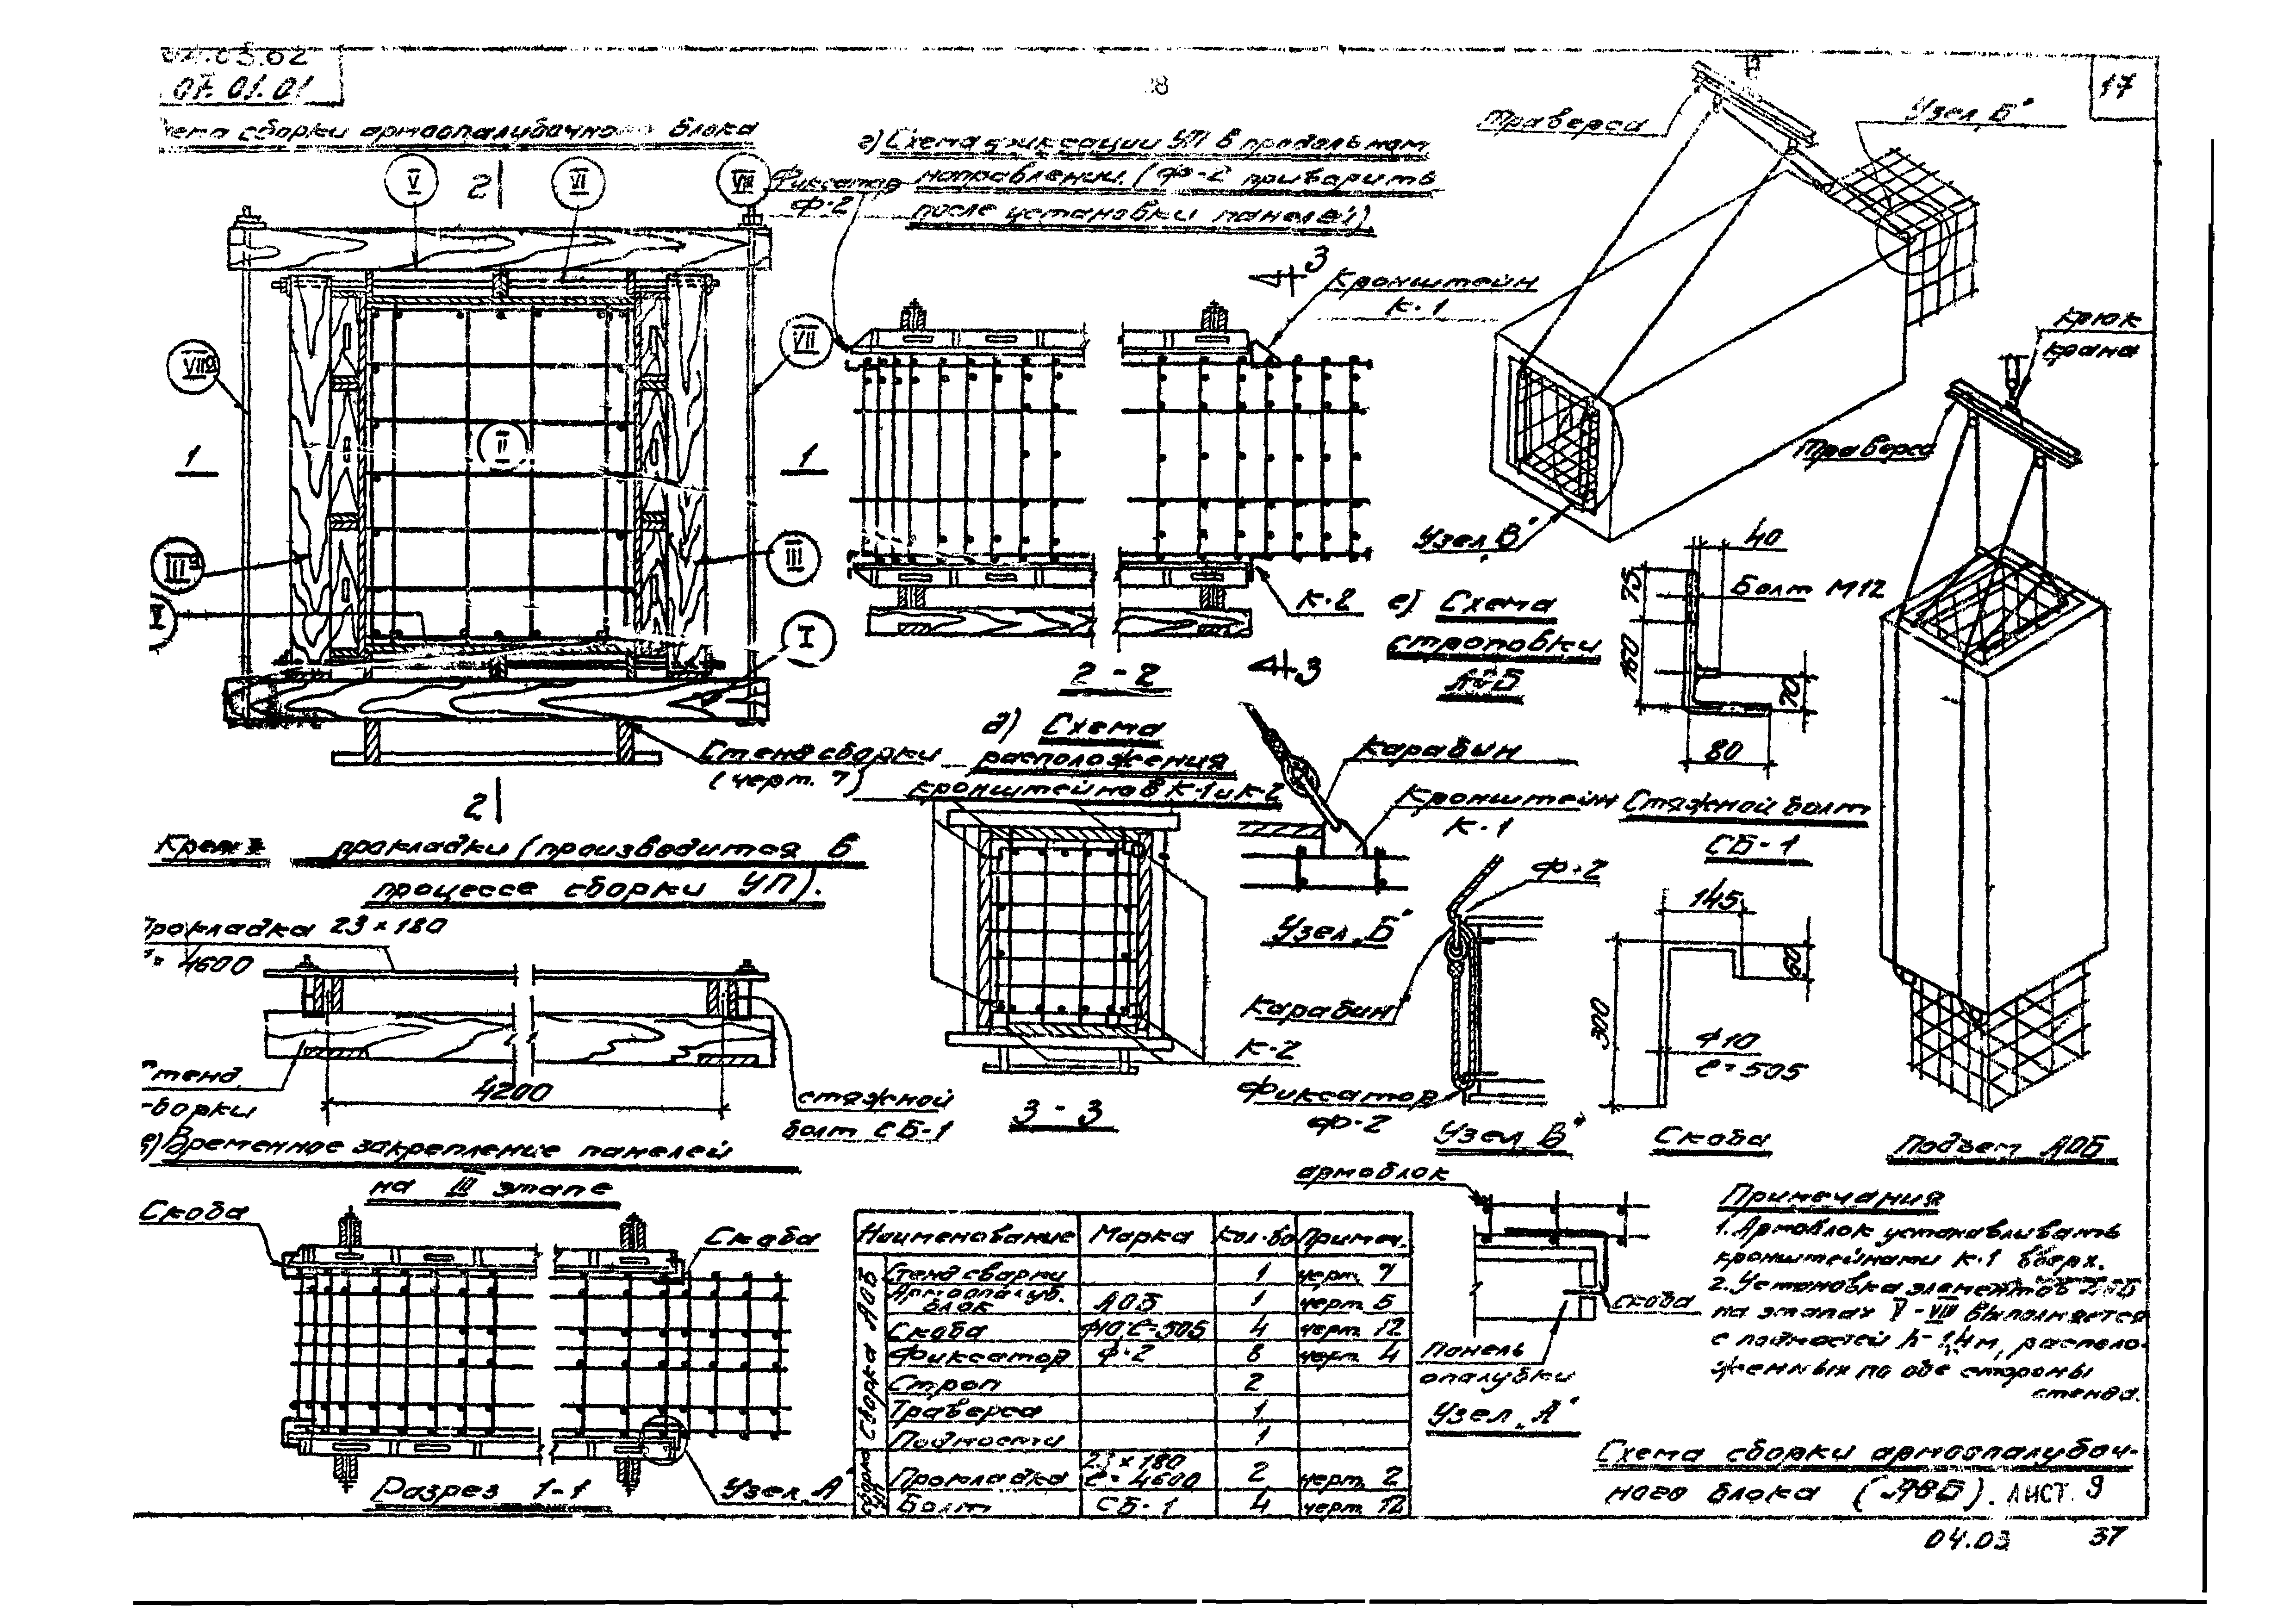 07.01.01
17
сборки армоопалубочного блока
г) Схема фиксации УП в продольном
направлении. (Ф-2 приварить
после установки панелей).
Фиксатор
Ф-2
V
2
VI
VIII
VII
VIIа
II
1
1
IIIа
III
I
Стенд сборки
(черт. 7)
2
Кронштейн
К-1
3
К-2
2 - 2
3
Траверса
Узел „Б"
Узел „В"
Крюк
крана
Траверса
е) Схема
строповки
АОБ
40
75
Болт М12
160
70
80
Стяжной болт
СБ-1
д) Схема
расположения
кронштейнов К-1 и К-2
К-2
3 - 3
Карабин
Кронштейн
К-1
Узел „Б"
Ф-2
Карабин
Фиксатор
Ф-2
Узел „В"
145
60
300
Ф10
ℓ=505
Скоба
Подъем АОБ
прокладки (производится в
процессе сборки УП).
Прокладка 23×180
4600
4200
Стенд
сборки
стяжной
болт СБ-1
Временное закрепление панелей
на III этапе
Скоба
Скоба
Разрез 1-1
Узел „А"
Наименование Марка Кол-во Примеч.
Сборка АОБ
Стенд сварки 1 черт. 7
Армоопалуб. блок АОБ 1 черт. 5
Скоба Ф10, ℓ=505 4 черт. 12
Фиксатор Ф-2 8 черт. 4
Строп 2
Траверса 1
Подмости 1
Сборка УП
Прокладка 23×180 ℓ=4600 2 черт. 2
Болт СБ-1 4 черт. 12
армоблок
скоба
Панель
опалубки
Узел „А"
Примечания
1. Армоблок устанавливать
кронштейнами К-1 вверх.
2. Установка элементов АОБ
на этапах V-VIII выполняется
с подмостей h-1,4м, располо-
женных по обе стороны
стенда.
Схема сборки армоопалубоч-
ного блока (АОБ). ЛИСТ. 9
04.03 37